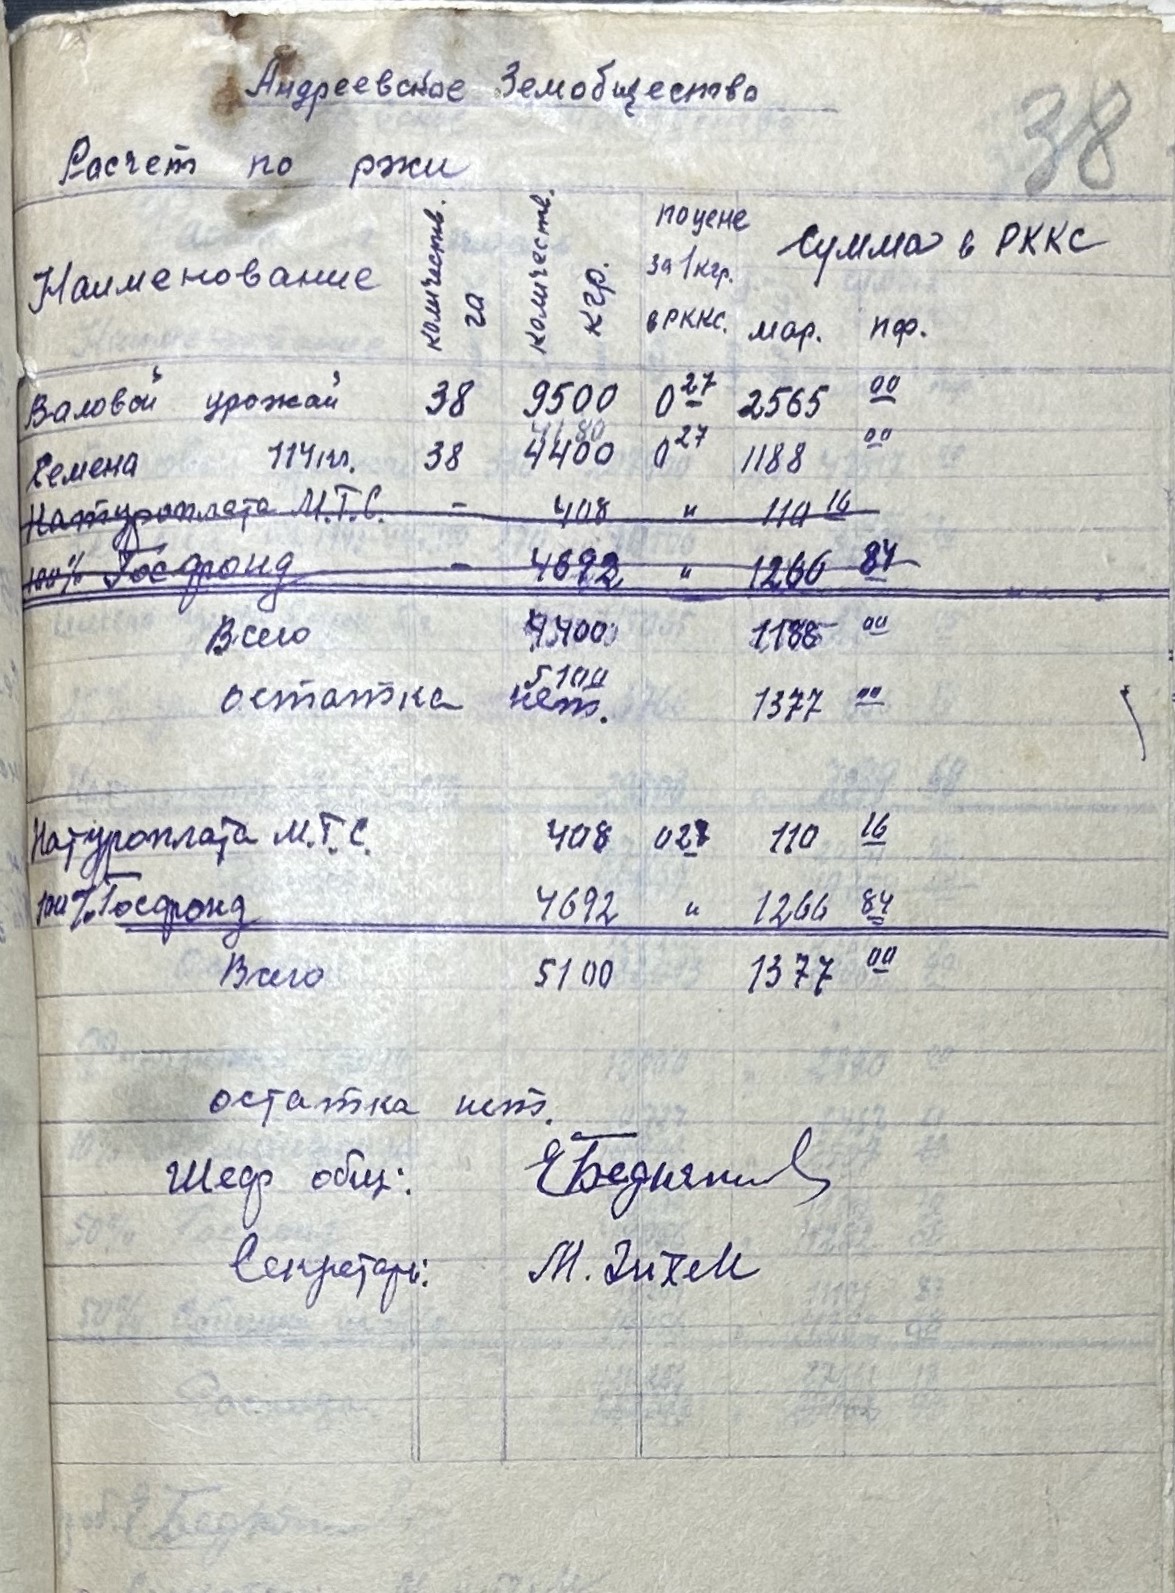 38
Андреевское Земобщество
Расчет по ржи
Наименование количеств. га количеств. кгр. по цене за 1 кгр. в РККС. Сумма в РККС
мар. пф.
Валовой урожай 38 9500 0 27 2565 00
4180
Семена 114 кг. 38 4400 0 27 1188 00
Натуроплата М.Т.С. - 408 " 110 16
100% Госфонд - 4692 " 1266 84
Всего 4400 1188 00
5100
остатка нет. 1377 00
Натуроплата М.Т.С. 408 0 27 110 16
100% Госфонд 4692 " 1266 84
Всего 5100 1377 00
остатка нет.
Шеф общ:
Секретарь: М.